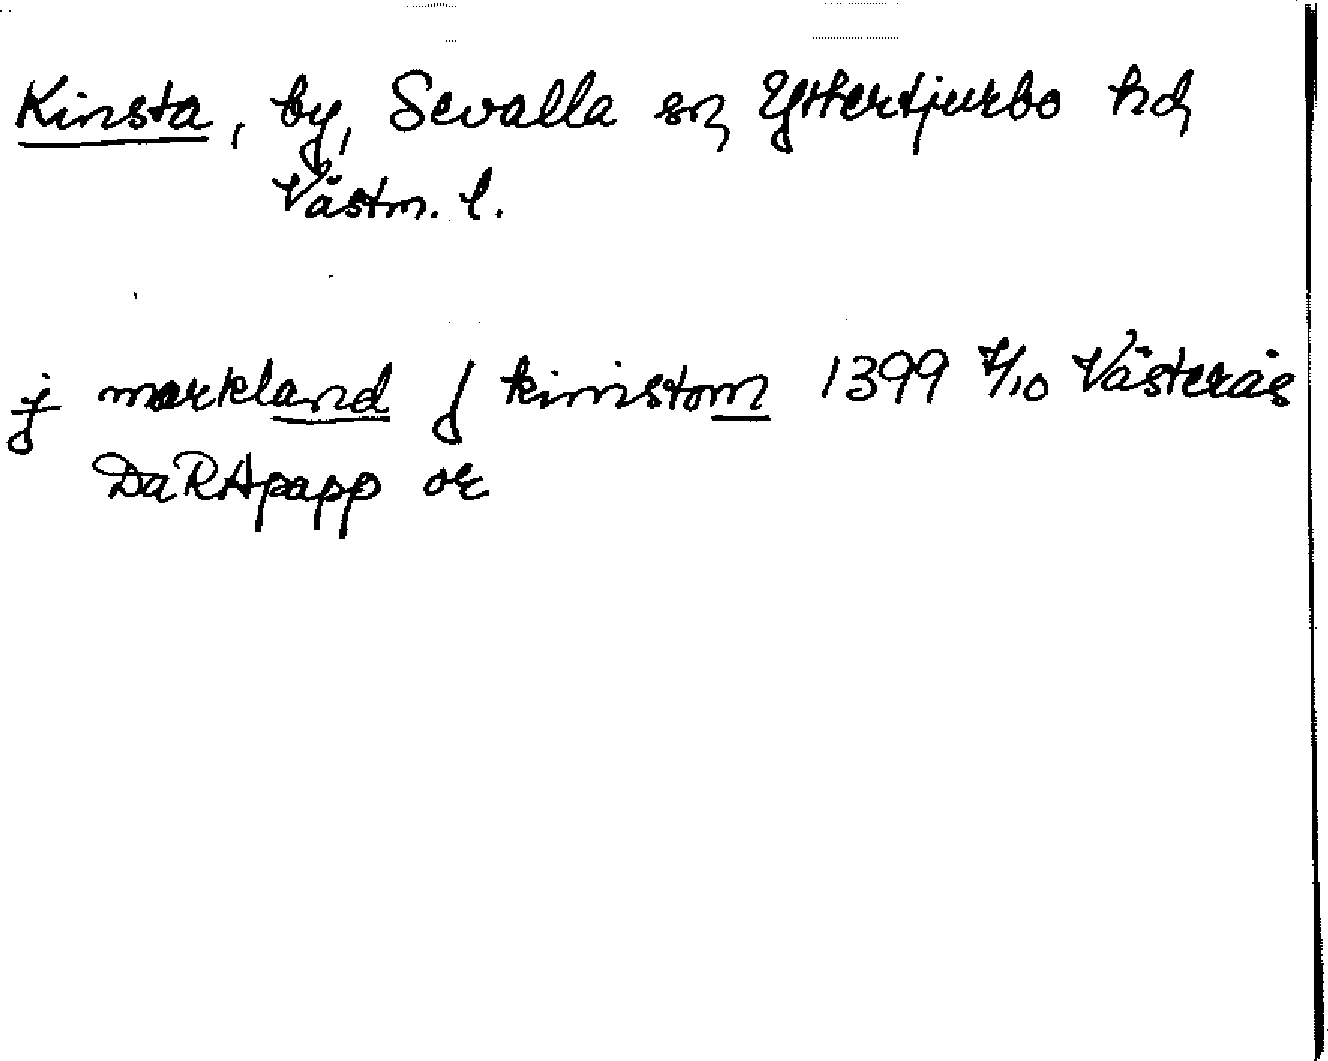 Kinsta, by, Sevalla sn, Yttertjurbo hd,
Västm. l.
j markland j kinistom 1399 7/10 Västerås
DaRApapp or